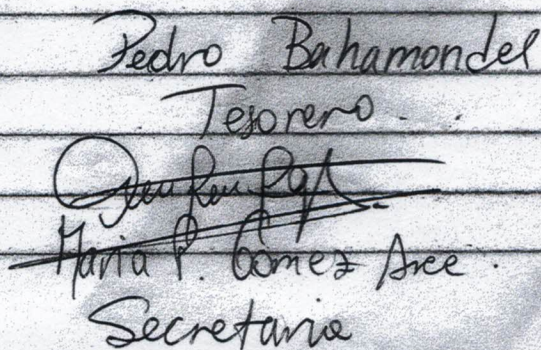 Pedro Bahamondel
Tesorero.
Maria P. Gómez Arce.
Secretaria